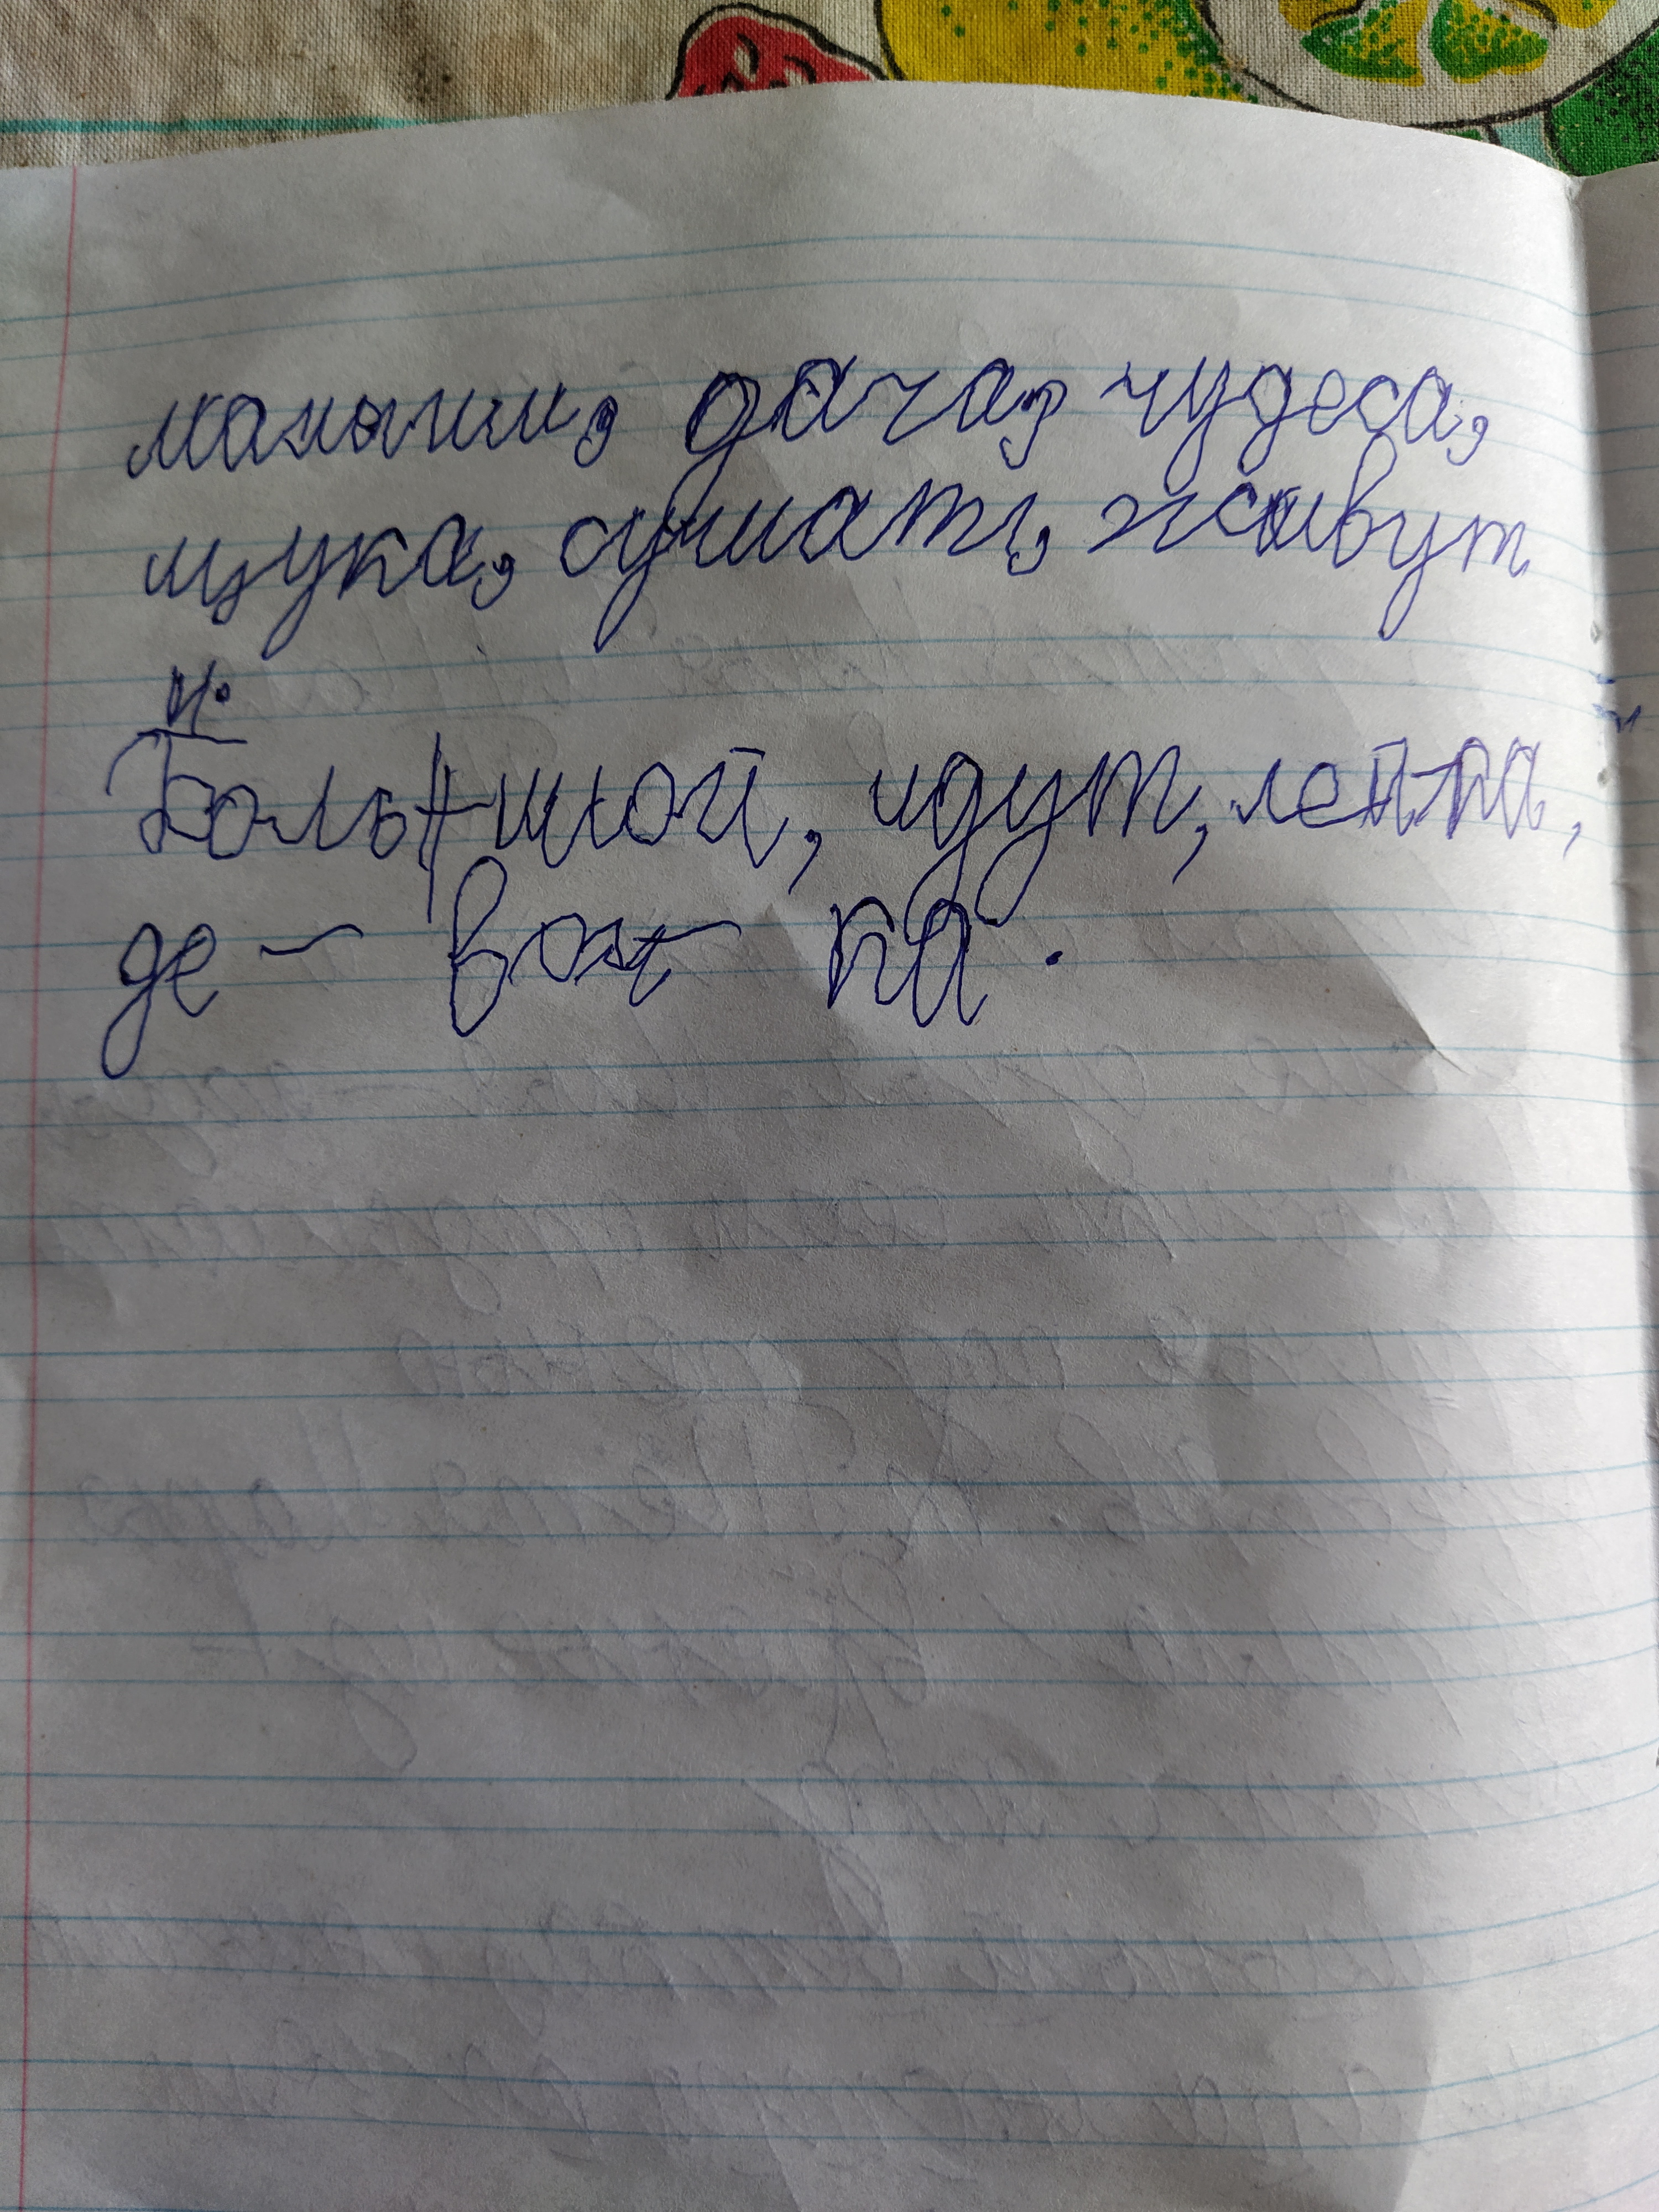 малыши, дача, чудеса,
щука, слушать, живут
Большой, идут, лента,
де - воч - ка.